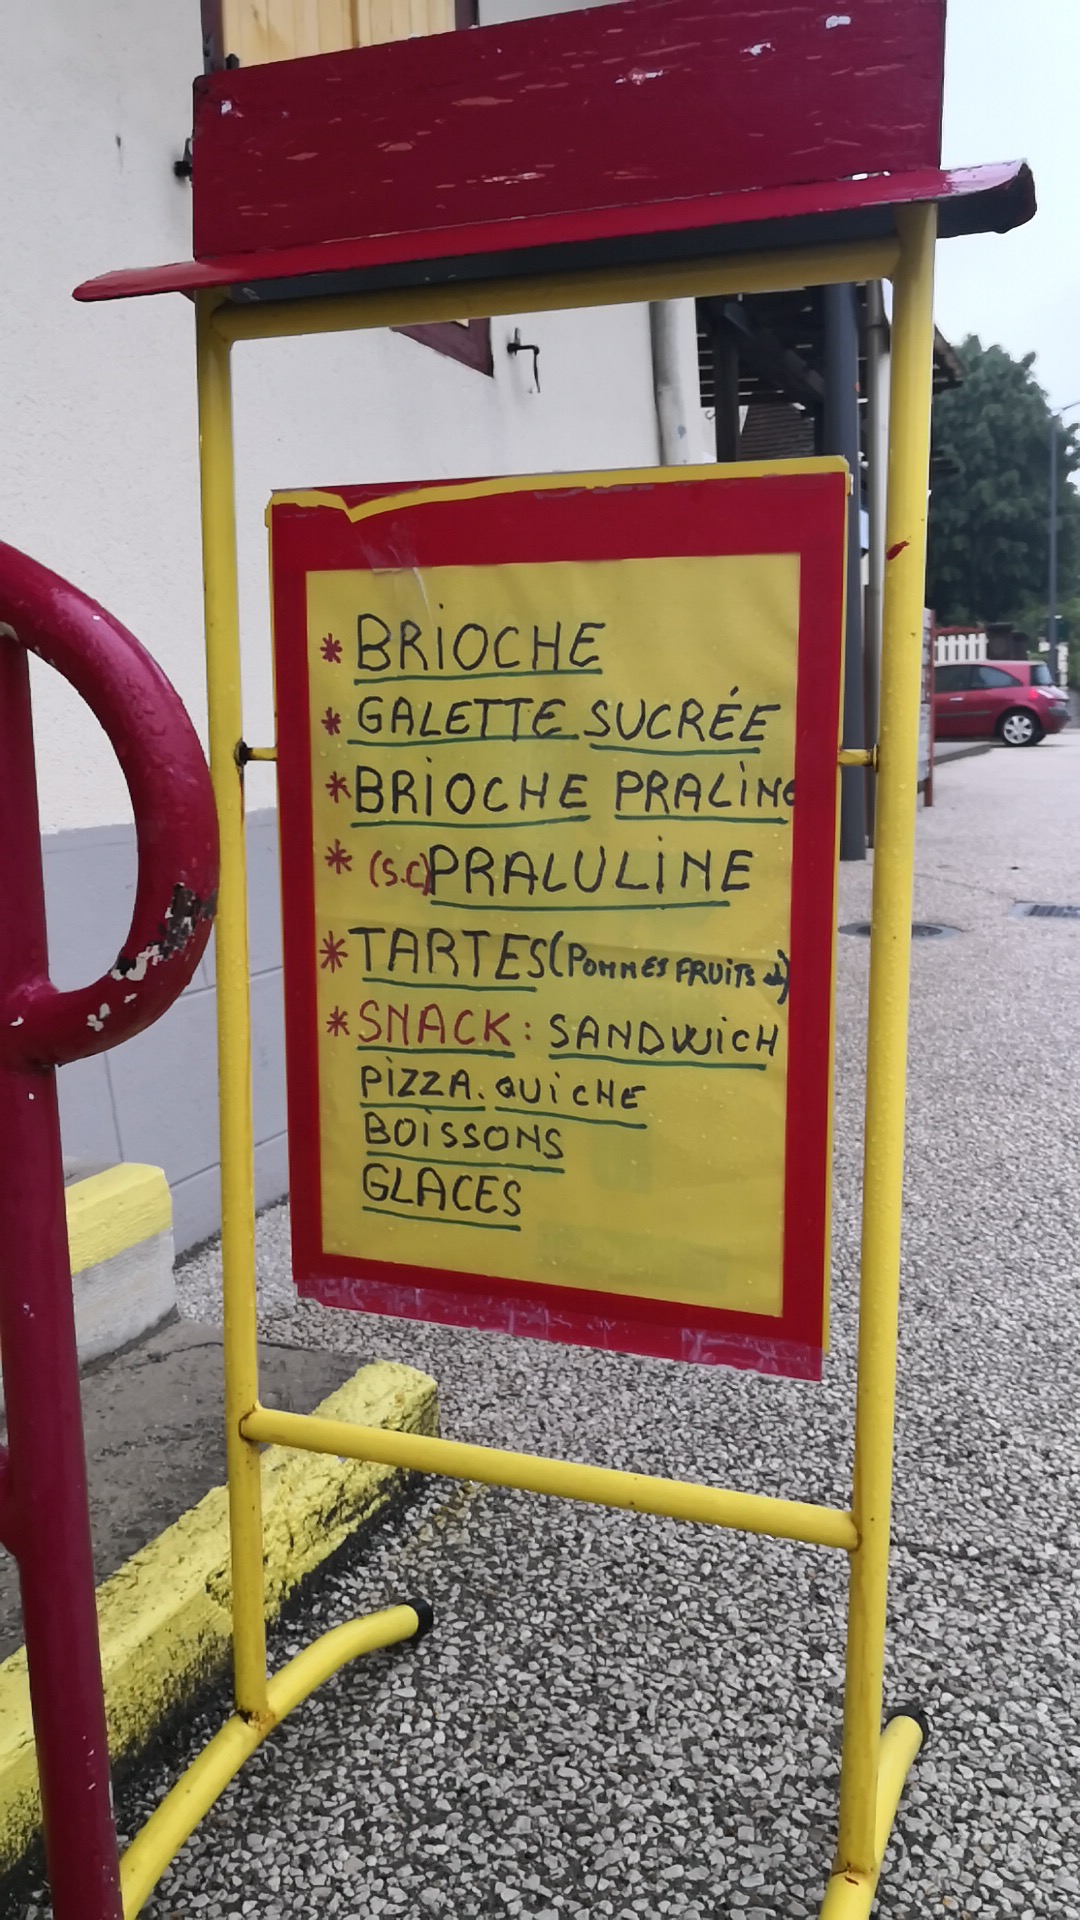 * BRIOCHE
* GALETTE SUCRÉE
* BRIOCHE PRALINE
* (S.C) PRALULINE
* TARTES (POMMES FRUITS
* SNACK : SANDWICH
PIZZA. QUICHE
BOISSONS
GLACES